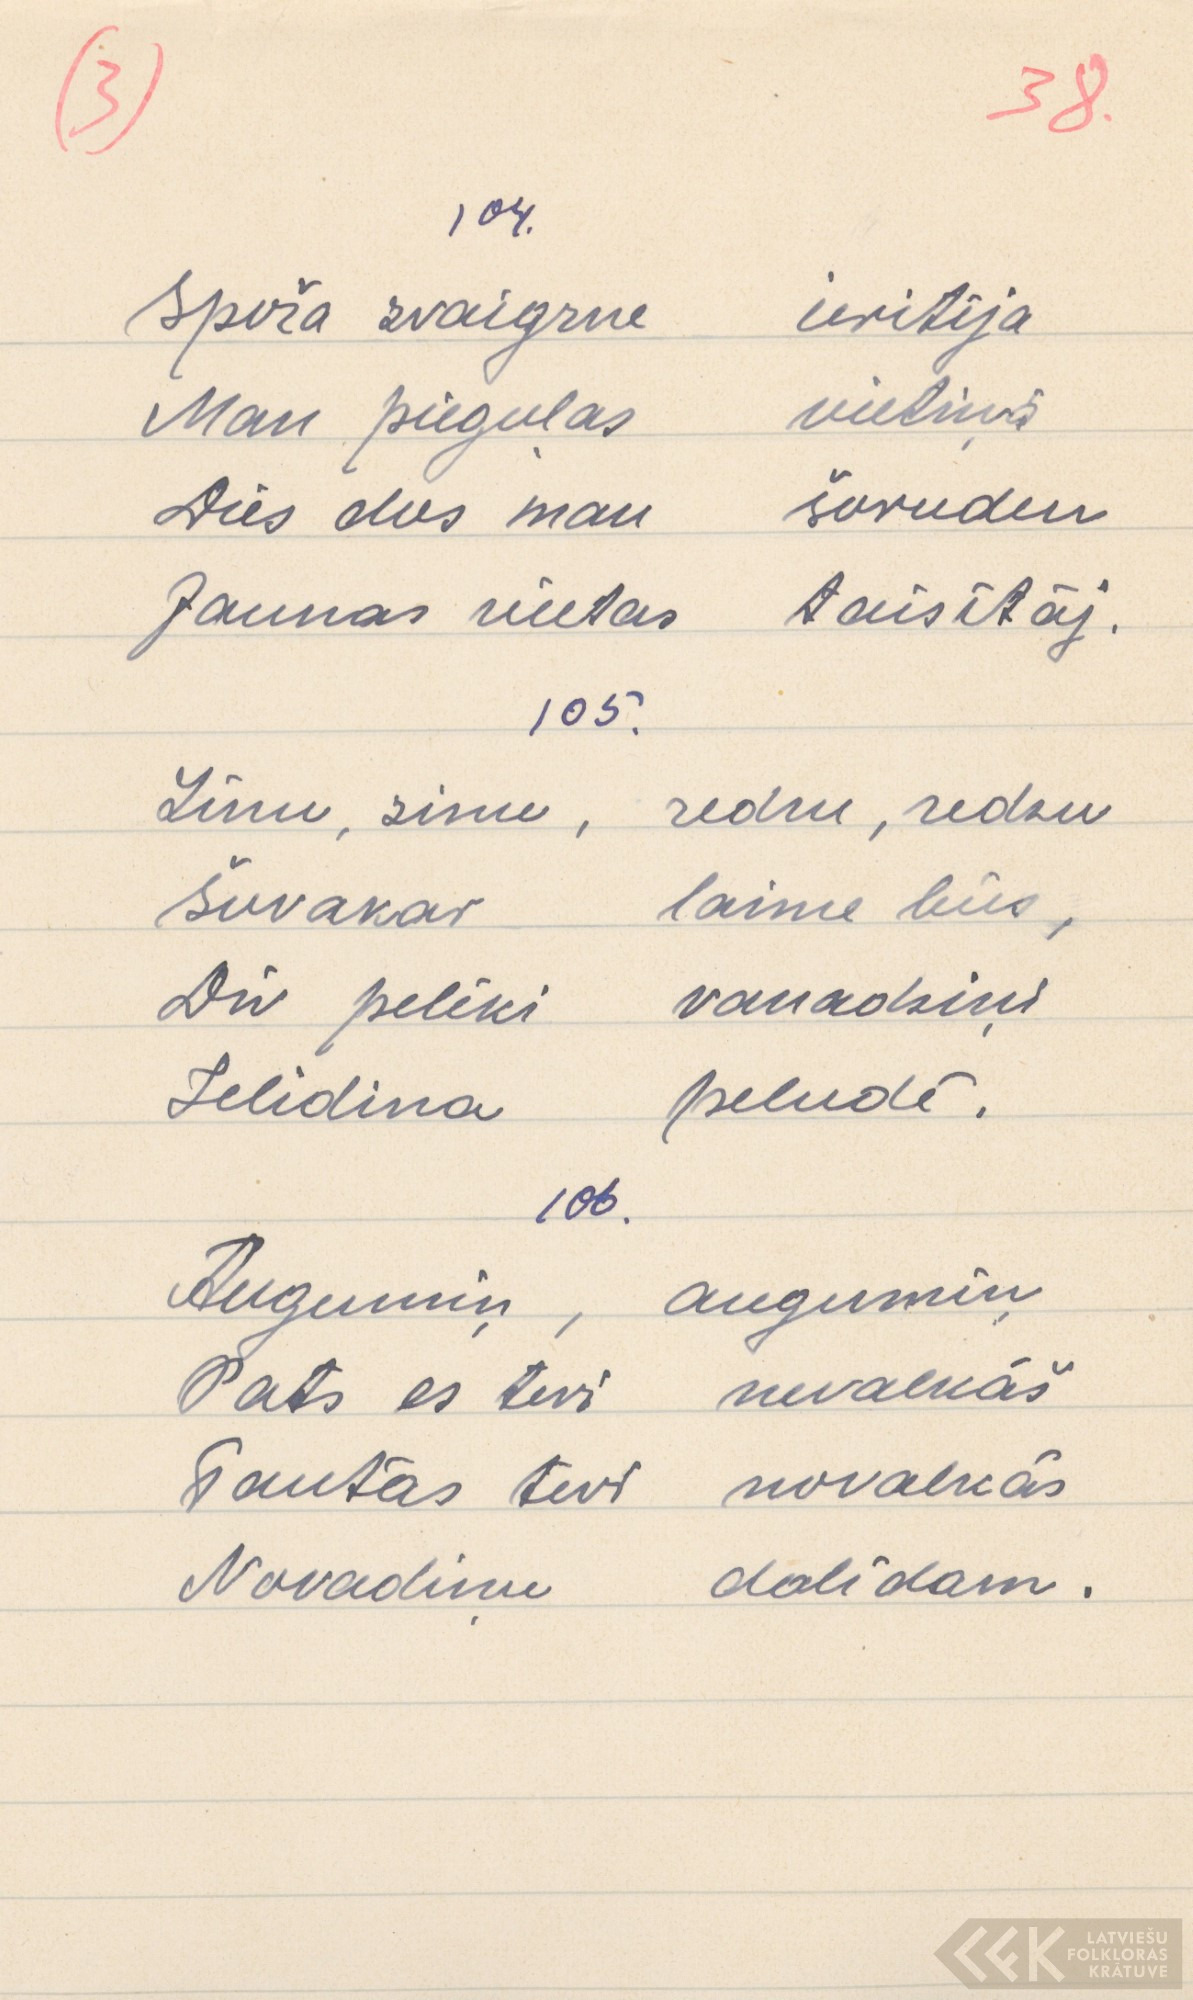 (3) 38.
104.
Spoža zvaigzne ieritīja
Man pieguļas vietiņā
Dies dos man šoruden
Jaunas vietas taisītāj.
105.
Zinu, zinu, redzu, redzu
Šovakar laime būs,
Div pelēki vanadziņi
Ielidina peludē.
106.
Augumiņ, augumiņ
Pats es tevi nevalkāš
Tautās tevi novalkās
Novadiņu dalīdam.
LATVIEŠU
FOLKLORAS
KRĀTUVE